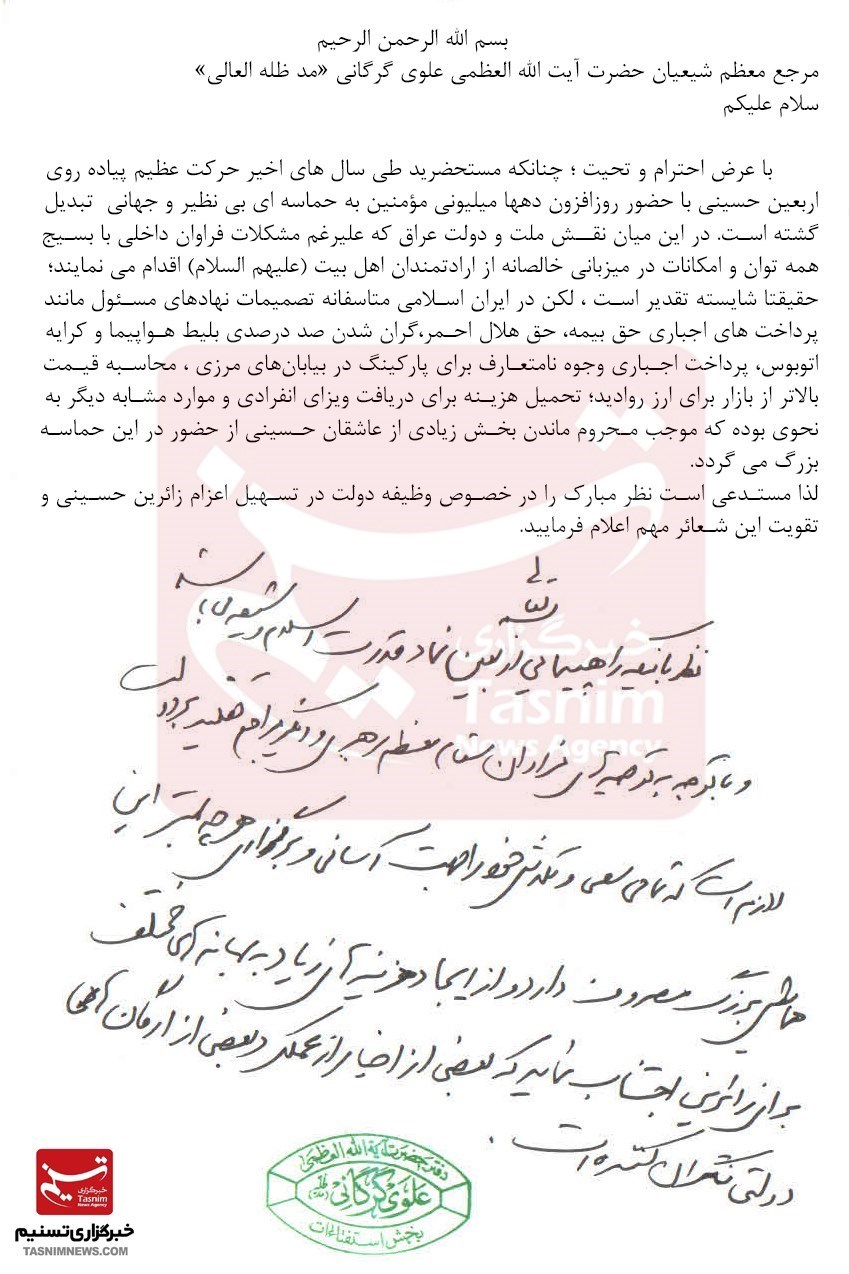 بسم الله الرحمن الرحیم
مرجع معظم شیعیان حضرت آیت الله العظمی علوی گرگانی «مد ظله العالی»
سلام علیکم
با عرض احترام و تحیت ؛ چنانکه مستحضرید طی سال های اخیر حرکت عظیم پیاده روی
اربعین حسینی با حضور روزافزون دهها میلیونی مؤمنین به حماسه ای بی نظیر و جهانی تبدیل
گشته است. در این میان نقش ملت و دولت عراق که علیرغم مشکلات فراوان داخلی با بسیج
همه توان و امکانات در میزبانی خالصانه از ارادتمندان اهل بیت (علیهم السلام) اقدام می نمایند؛
حقیقتا شایسته تقدیر است ، لکن در ایران اسلامی متاسفانه تصمیمات نهادهای مسئول مانند
پرداخت های اجباری حق بیمه، حق هلال احمر،گران شدن صد درصدی بلیط هواپیما و کرایه
اتوبوس، پرداخت اجباری وجوه نامتعارف برای پارکینگ در بیابان‌های مرزی ، محاسبه قیمت
بالاتر از بازار برای ارز روادید؛ تحمیل هزینه برای دریافت ویزای انفرادی و موارد مشابه دیگر به
نحوی بوده که موجب محروم ماندن بخش زیادی از عاشقان حسینی از حضور در این حماسه
بزرگ می گردد.
لذا مستدعی است نظر مبارک را در خصوص وظیفه دولت در تسهیل اعزام زائرین حسینی و
تقویت این شعائر مهم اعلام فرمایید.
نظر باینکه راهپیمایی اربعین نماد قدرت اسلام و شیعه می باشد
و با توجه به توصیه های فراوان مقام معظم رهبری و دیگر مراجع تقلید بر دولت
لازم است که تمامی سعی و تلاش خود را جهت آسانی و برگزاری هرچه بهتر این
همایش بزرگ مصروف دارد و از ایجاد هزینه های زیاد به بهانه های مختلف
برای زائرین اجتناب نماید که بعضی از اخبار از عملکرد بعضی از ارگان های
دولتی نگران کننده است.
دفتر حضرت آیة الله العظمی
علوی گرگانی
بخش استفتاءات
خبرگزاری
Tasnim
News Agency
خبرگزاری
Tasnim
News Agency
خبرگزاری تسنیم
TASNIMNEWS.COM